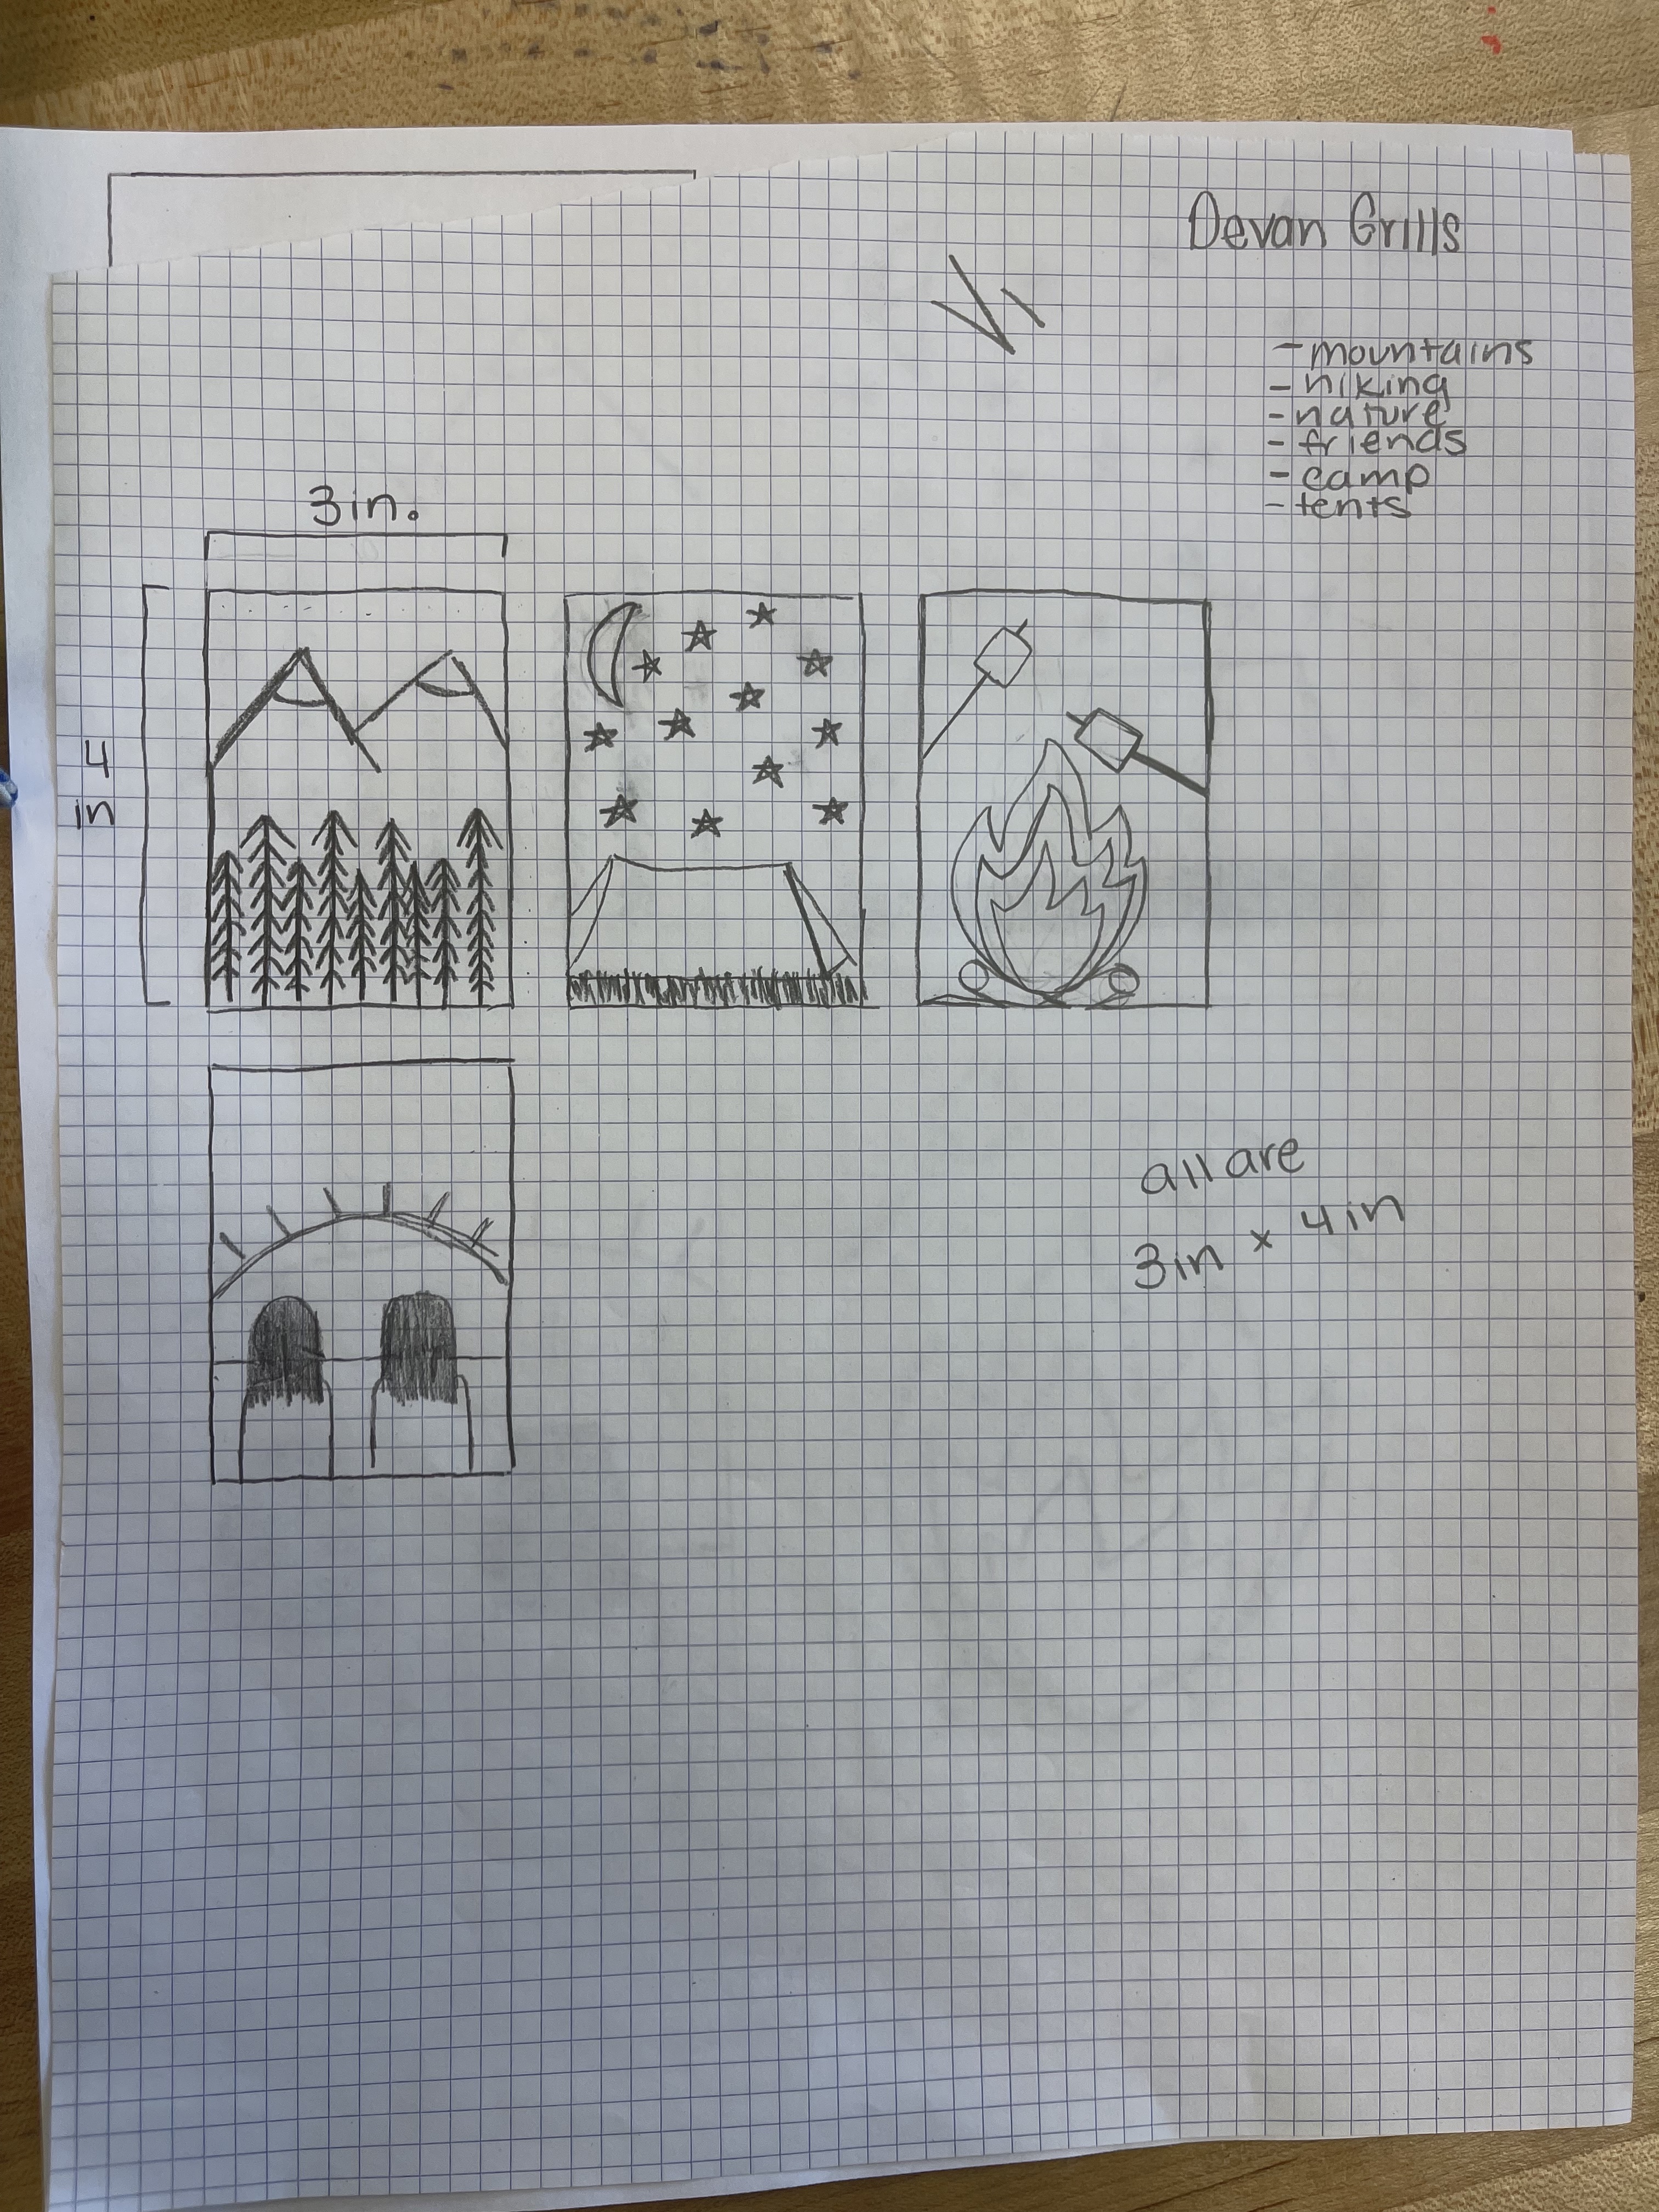 Devan Grills
- mountains
- hiking
- nature
- friends
- camp
- tents
3in.
4
in
all are
3in x 4in